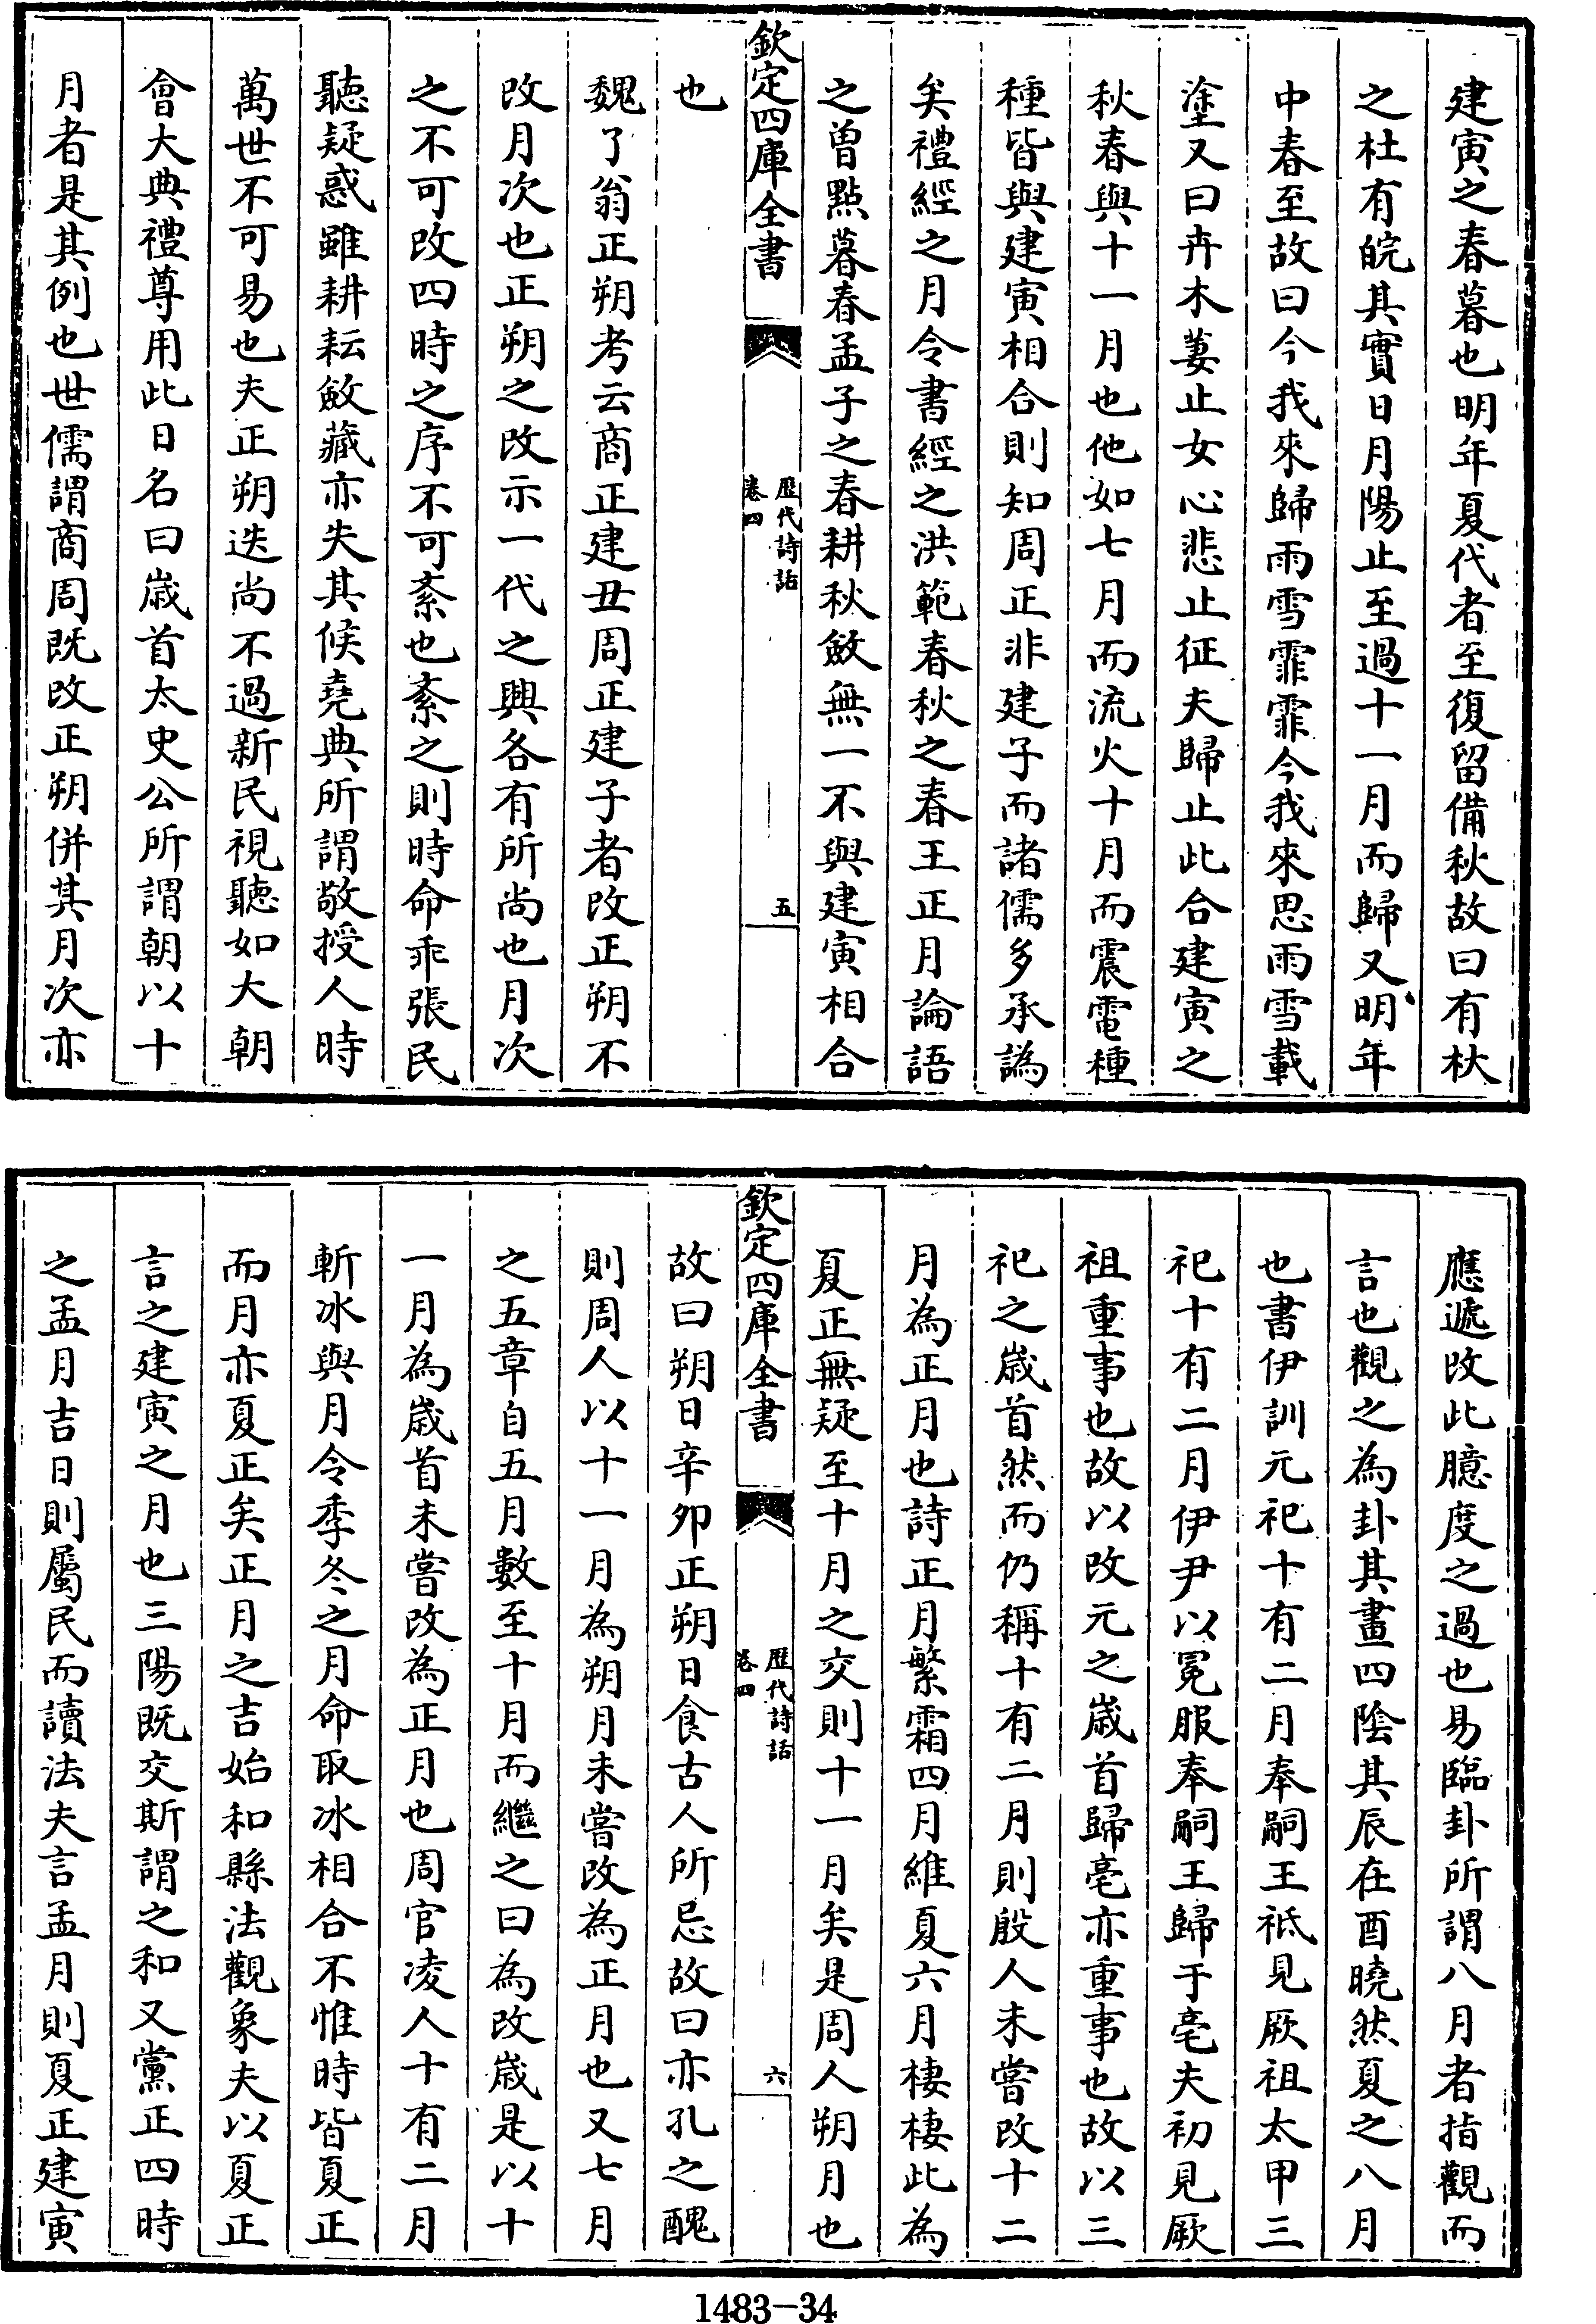 建寅之春暮也明年夏代者至復留備秋故曰有杕
之杜有皖其實日月陽止至過十一月而歸又明年
中春至故曰今我來歸雨雪霏霏今我來思雨雪載
塗又曰卉木萋止女心悲止征夫歸止此合建寅之
秋春與十一月也他如七月而流火十月而震電種
種皆與建寅相合則知周正非建子而諸儒多承譌
矣禮經之月令書經之洪範春秋之春王正月論語
之曽㸃暮春孟子之春耕秋斂無一不與建寅相合
欽定四庫全書
歴代詩話
卷四
五
也
魏了翁正朔考云商正建丑周正建子者改正朔不
改月次也正朔之改示一代之興各有所尚也月次
之不可改四時之序不可紊也紊之則時命乖張民
聽疑惑雖耕耘斂藏亦失其候堯典所謂敬授人時
萬世不可易也夫正朔迭尚不過新民視聽如大朝
會大典禮尊用此日名曰歳首太史公所謂朝以十
月者是其例也世儒謂商周既改正朔併其月次亦
應遞改此臆度之過也易臨卦所謂八月者指觀而
言也觀之為卦其畫四陰其辰在酉曉然夏之八月
也書伊訓元祀十有二月奉嗣王祗見厥祖太甲三
祀十有二月伊尹以冕服奉嗣王歸于亳夫初見厥
祖重事也故以改元之歳首歸亳亦重事也故以三
祀之歳首然而仍稱十有二月則殷人未嘗改十二
月為正月也詩正月繁霜四月維夏六月棲棲此為
夏正無疑至十月之交則十一月矣是周人朔月也
欽定四庫全書
歴代詩話
卷四
六
故曰朔日辛卯正朔日食古人所忌故曰亦孔之醜
則周人以十一月為朔月未嘗改為正月也又七月
之五章自五月數至十月而繼之曰為改歳是以十
一月為歳首未嘗改為正月也周官凌人十有二月
斬冰與月令季冬之月命取冰相合不惟時皆夏正
而月亦夏正矣正月之吉始和縣法觀象夫以夏正
言之建寅之月也三陽既交斯謂之和又黨正四時
之孟月吉日則屬民而讀法夫言孟月則夏正建寅
1483-34